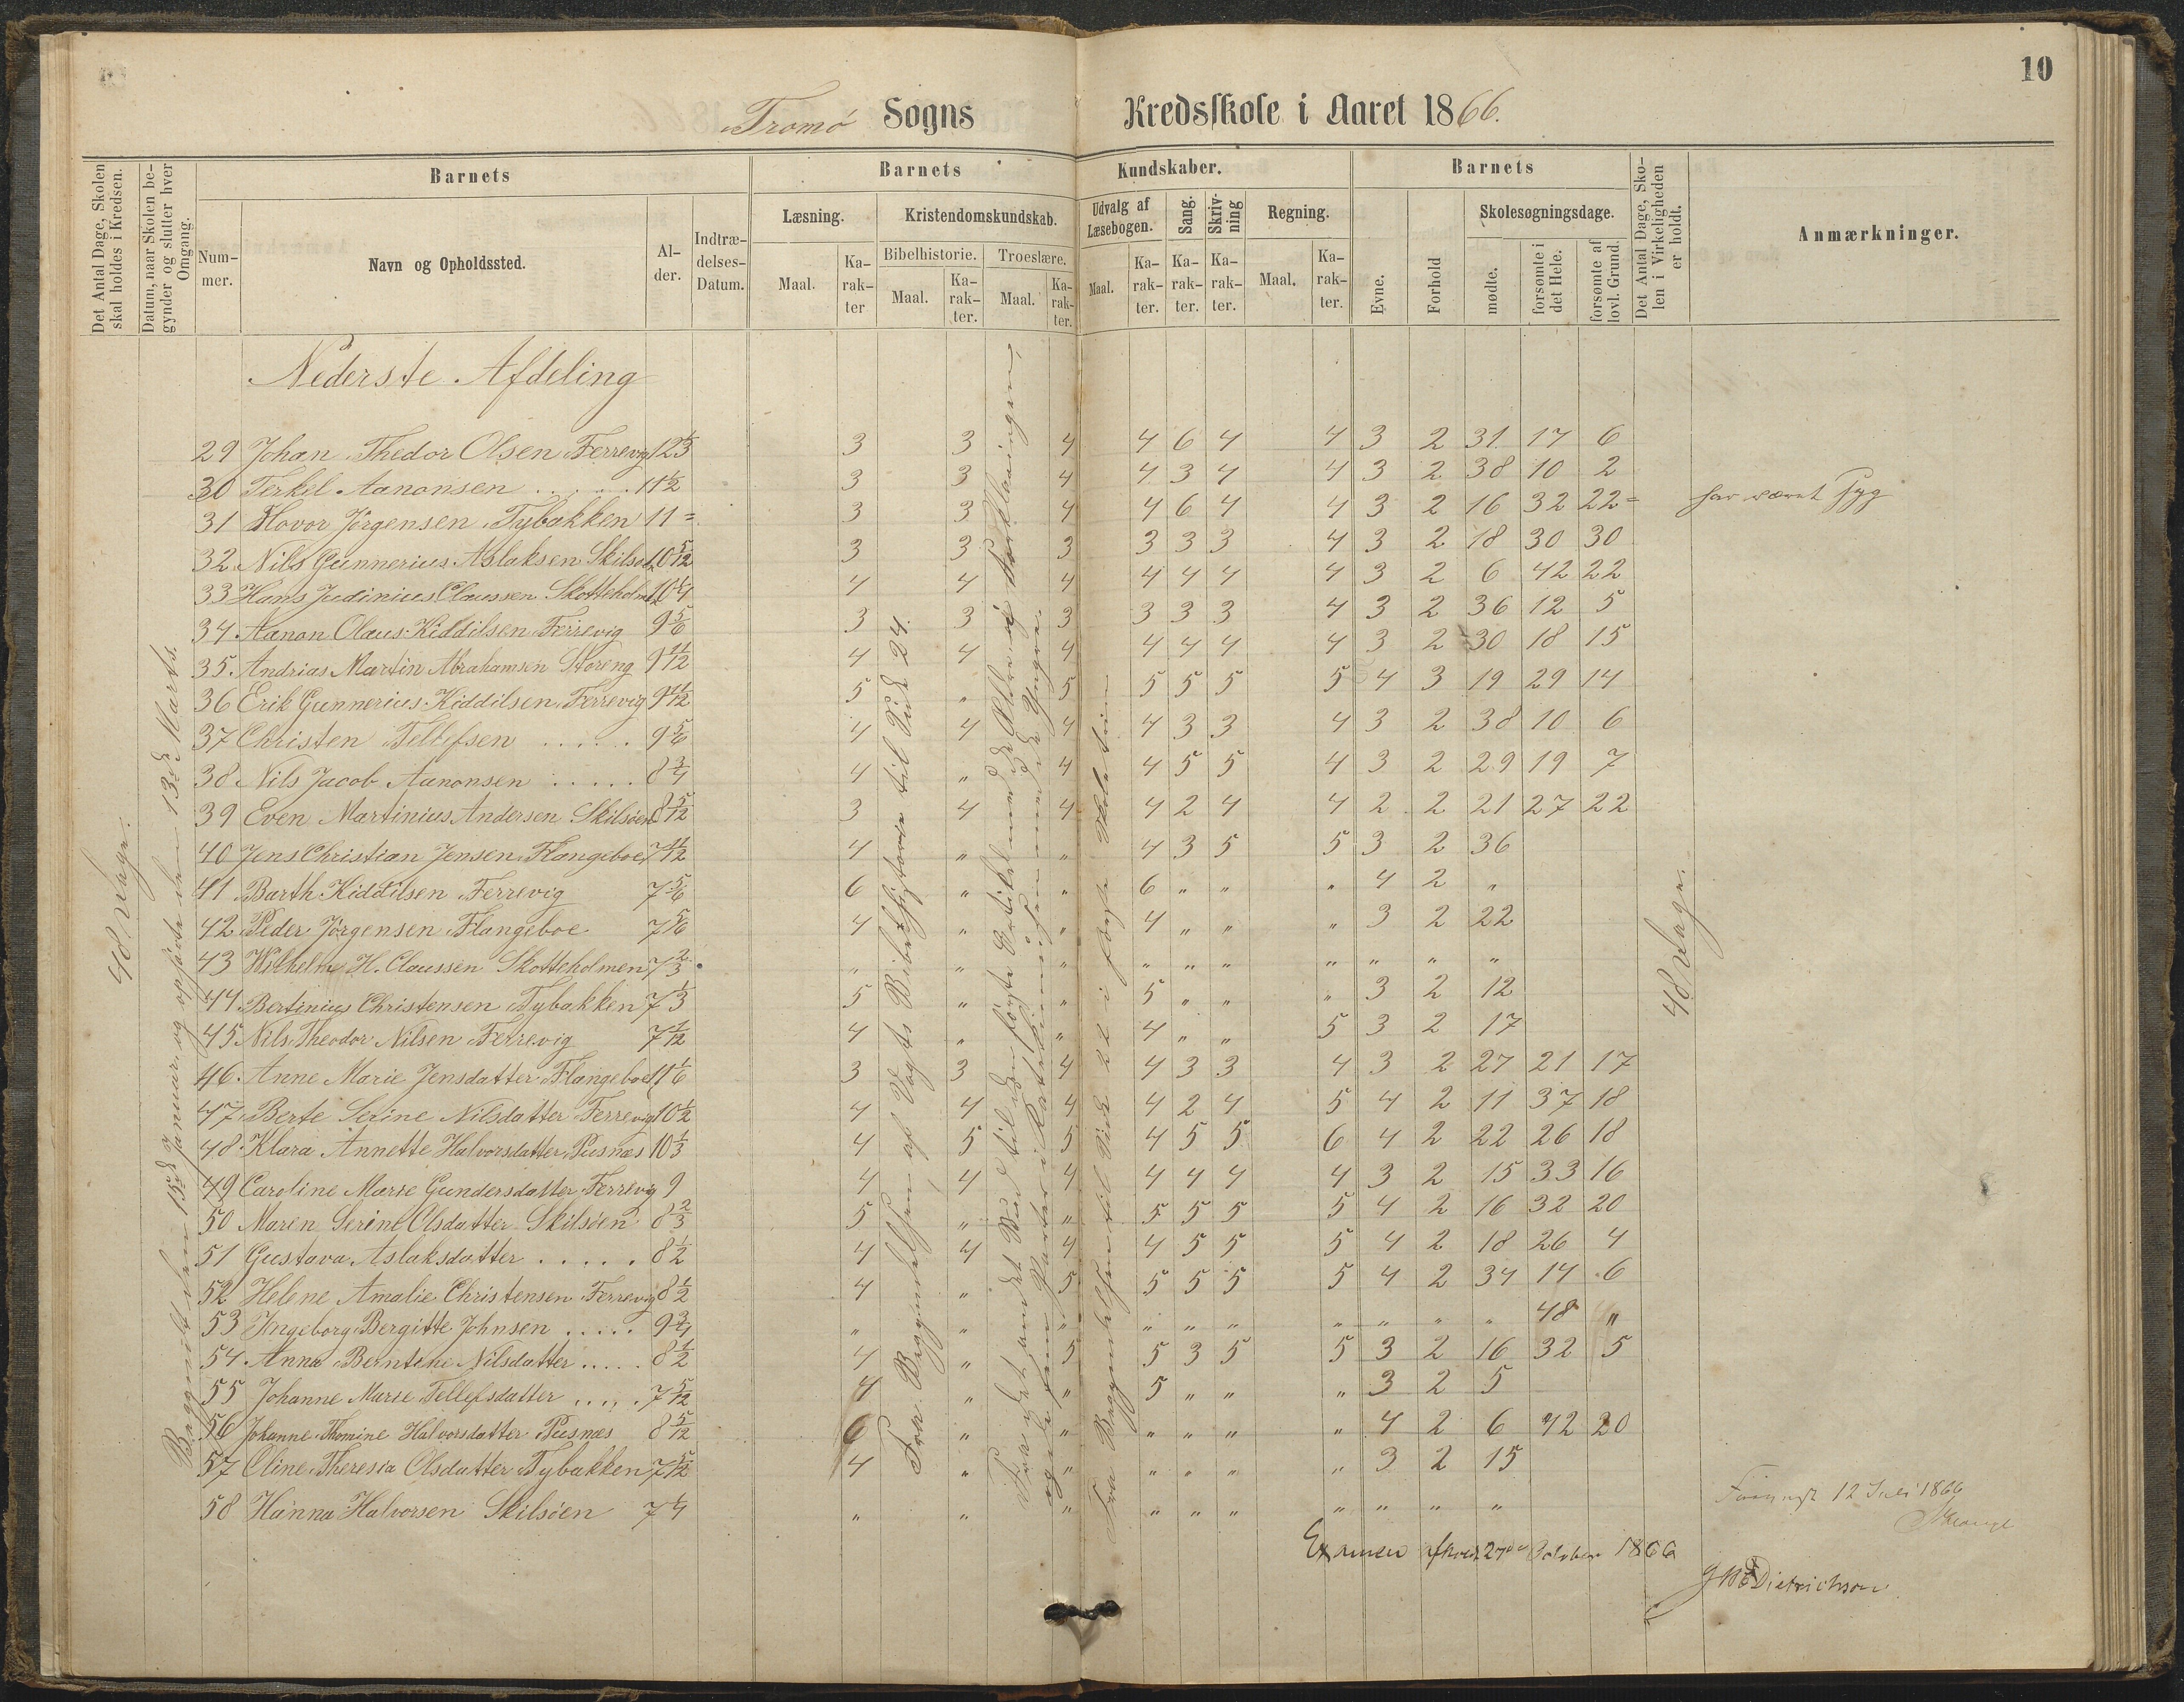 10
Tromö Sogns Kredsskole i Aaret 1866.
Det Antal Dage, Skolen skal holdes i Kredsen.
Datum, naar Skolen begynder og slutter hver Omgang.
Barnets
Nummer.
Navn og Opholdssted.
Alder.
Indtrædelses-Datum.
Barnets Kundskaber.
Læsning.
Maal.
Karakter
Kristendomskundskab.
Bibelhistorie.
Maal.
Karakter.
Troeslære.
Maal.
Karakter.
Udvalg af Læsebogen.
Maal.
Karakter.
Sang.
Karakter.
Skrivning
Karakter.
Regning.
Maal.
Karakter.
Barnets
Evne.
Forhold
Skolesøgningsdage.
mødte.
forsømte i det Hele.
forsømte af lovl. Grund.
Det Antal Dage, Skolen i Virkeligheden er holdt.
Anmærkninger.
Nederste Afdeling
48 Dage.
Begyndt den 15de Januar og ophörte den 13de Marts.
Fra Begyndelsen af Vogts Bibelhistorie til Side 24.
Fra Begyndelsen til Side 22 i
48 Dage.
29 Johan Thedor Olsen Ferrevig 12 1/3 3 3 4 4 6 4 4 3 2 31 17 6
30 Terkel Aanonsen . . . . 11 1/2 3 3 4 4 3 4 4 3 2 38 10 2
31 Hovor Jörgensen Tybakken 11 = 3 3 4 4 6 4 4 3 2 16 32 22 = har været syg
32 Nils Gunnerius Aslaksen Skilsö 10 5/12 3 3 3 3 3 3 4 3 2 18 30 30
33 Hans Judinius Claussen Skotteholm 10 1/4 4 4 4 4 4 4 4 3 2 6 42 22
34 Aanon Olaus Kiddilsen Ferrevig 9 5/6 3 3 3 3 3 3 4 3 2 36 12 5
35. Andrias Martin Abrahamsen Storeng 9 1/12 4 4 4 4 4 4 4 3 2 30 18 15
36 Erik Gunnerius Kiddilsen Ferrevig 9 1/12 5 " 5 5 5 5 5 4 3 19 29 14
37 Christen Tellefsen . . . . . 9 5/6 4 4 4 4 3 3 4 3 2 38 10 6
38 Nils Jacob Aanonsen . . . . . 8 3/4 4 " 4 4 5 5 4 3 2 29 19 7
39 Even Martinius Andersen Skilsöen 8 5/12 3 4 4 4 2 4 4 2 2 21 27 22
40 Jens Christian Jensen Flangeboe 7 11/12 4 " " 4 3 5 5 3 2 36
41 Barth Kiddilsen Ferrevig 7 5/6 6 " " 6 " " " 4 2 "
42 Peder Jörgensen Flangeboe 7 5/6 4 " " 4 " " " 3 2 22
43 Wilhelm H. Claussen Skotteholmen 7 2/3 " " " " " " " " " "
44 Bertinius Christensen Tybakken 7 1/3 5 " " 5 " " " 3 2 12
45 Nils Theodor Nilsen Ferrevig 7 1/12 4 " " 4 " " 5 3 2 17
46. Anne Marie Jensdatter Flangeboe 11 1/6 3 3 4 4 3 3 4 3 2 27 21 17
47. Berte Serine Nilsdatter Ferrevig 10 1/2 4 4 4 4 2 4 5 4 2 11 37 18
48. Klara Annette Halvorsdatter Pusnæs 10 1/3 4 5 5 4 5 5 6 4 2 22 26 18
49 Caroline Marie Gundersdatter Ferrevig 9 4 4 4 4 4 4 4 3 2 15 33 16
50 Maren Serine Olsdatter Skilsöen 8 2/3 5 " " 5 5 5 5 4 2 16 32 20
51 Gustava Aslaksdatter . . . . . 8 1/2 4 4 4 4 5 5 5 4 2 18 26 4
52 Helene Amalie Christensen Ferrevig 8 1/2 4 " 5 5 5 5 5 4 2 34 14 6
53 Ingeborg Bergitte Johnsen . . . . . 9 3/4 " " " " " " " " " " 48 "
54 Anna Berntine Nilsdatter . . . . . 8 1/2 4 " 5 5 3 5 5 3 2 16 32 5
55 Johanne Marie Tellefsdatter . . . . . 7 5/12 4 " " 5 " " " 3 2 5
56 Johanne Thomine Halvorsdatter Pusnæs 8 5/12 6 " " " " " " 4 2 6 42 20
57 Oline Theresia Olsdatter Tybakken 7 5/12 4 " " " " " " 3 2 15
58 Hanna Halvorsen Skilsöen 7 1/4 " " " " " " " " " "
12 Juli 1866
Examen afholdt 27de October 1866
Dietrichson